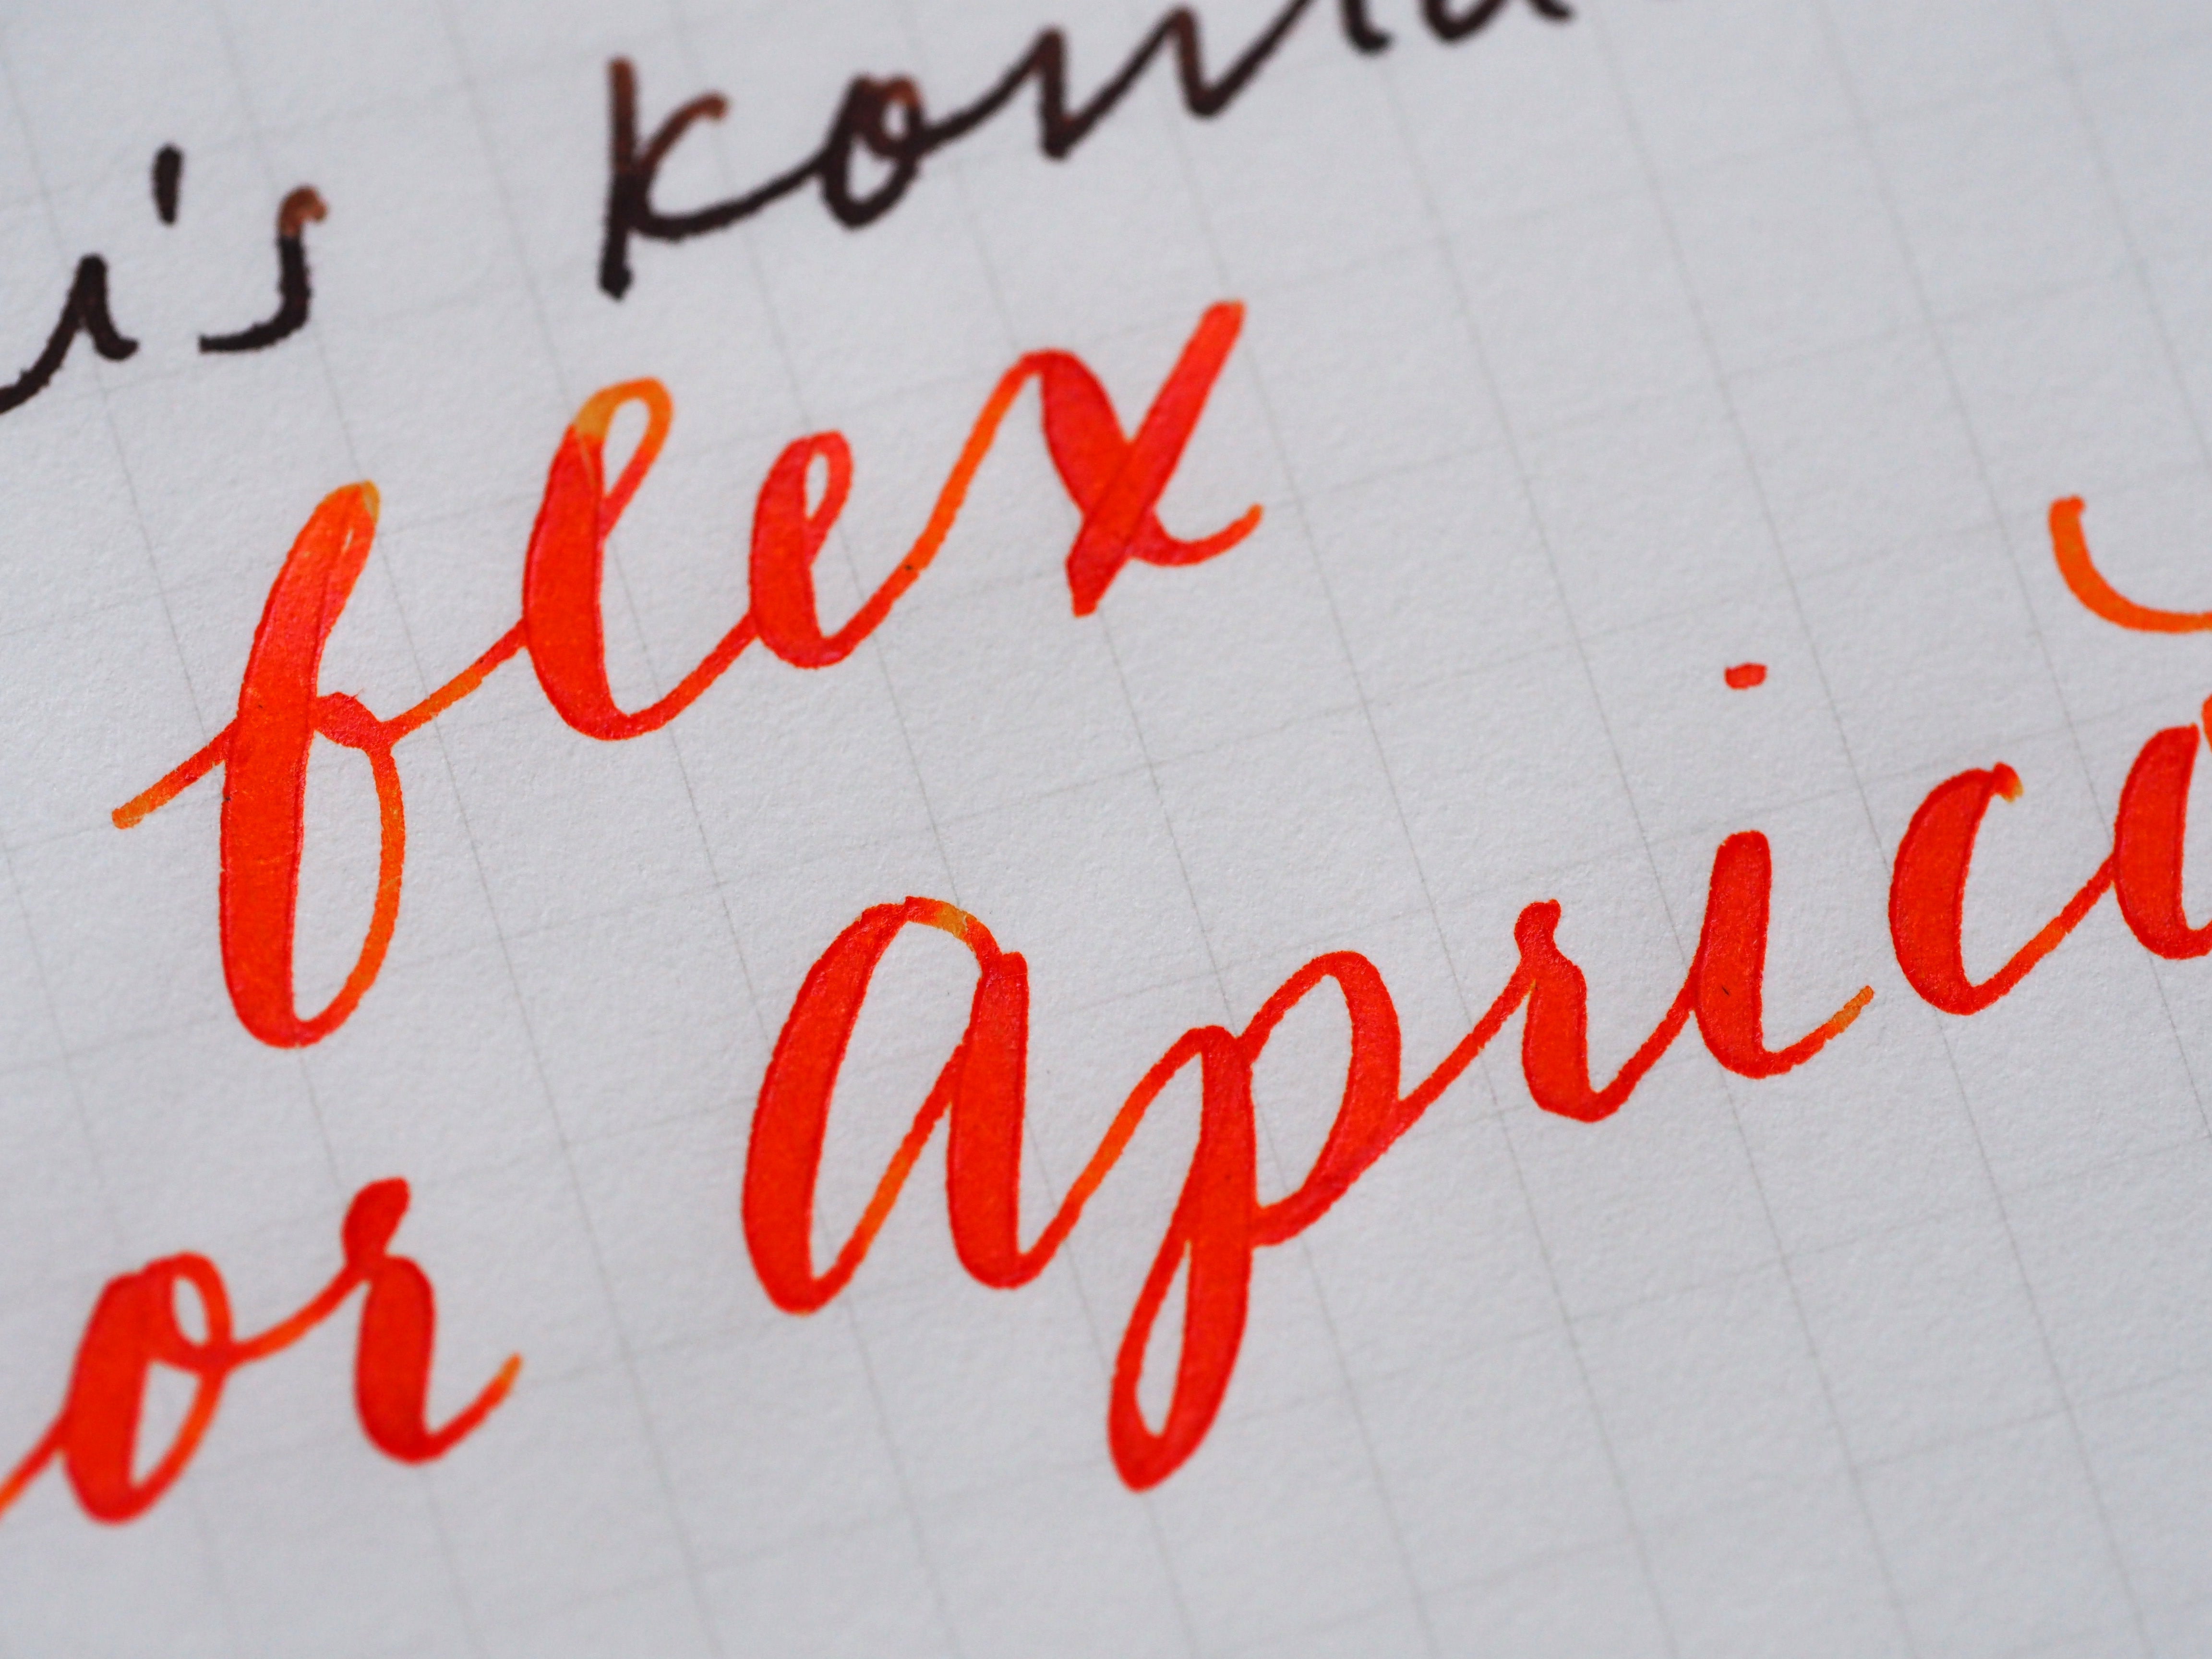 is Konra
flex
or apric